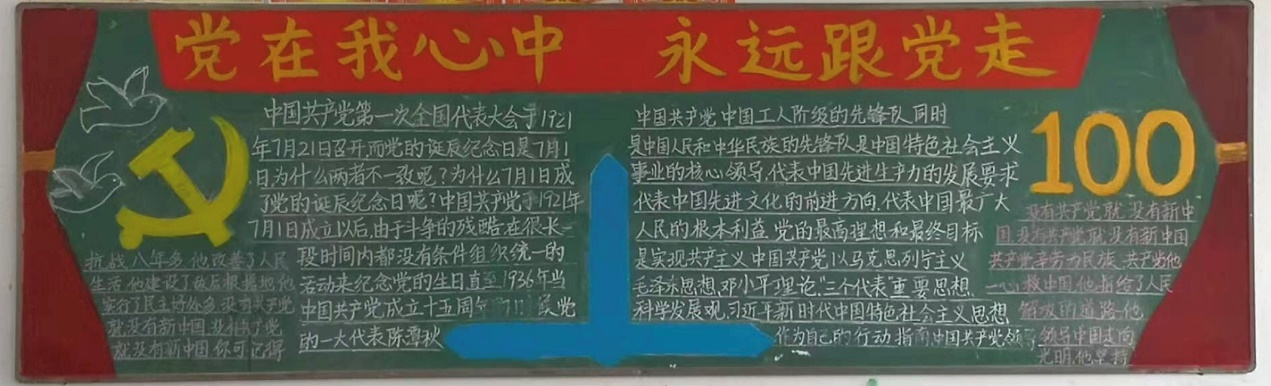 党在我心中 永远跟党走
中国共产党第一次全国代表大会于1921
年7月21日召开,而党的诞辰纪念日是7月1
日,为什么两者不一致呢?为什么7月1日成
了党的诞辰纪念日呢?中国共产党于1921年
7月1日成立以后,由于斗争的残酷,在很长一
段时间内都没有条件组织统一的
活动来纪念党的生日直至1936年当
中国共产党成立十五周年 党
的一大代表陈潭秋
抗战八年多,他改善了人民
生活,他建设了敌后根据地,他
实行了民主好处多,没有共产党
就没有新中国,没有共产党
就没有新中国,你可记得
中国共产党中国工人阶级的先锋队,同时
是中国人民和中华民族的先锋队是中国特色社会主义
事业的核心领导,代表中国先进生产力的发展要求
代表中国先进文化的前进方向,代表中国最广大
人民的根本利益,党的最高理想和最终目标
是实现共产主义,中国共产党以马克思列宁主义
毛泽东思想,邓小平理论,"三个代表"重要思想,
科学发展观,习近平新时代中国特色社会主义思想
作为自己的行动指南,中国共产党领导
100
没有共产党就没有新中
国,没有共产党就没有新中国
共产党辛劳为民族,共产党他
一心救中国,他指给了人民
解放的道路,他
领导中国走向
光明,他坚持